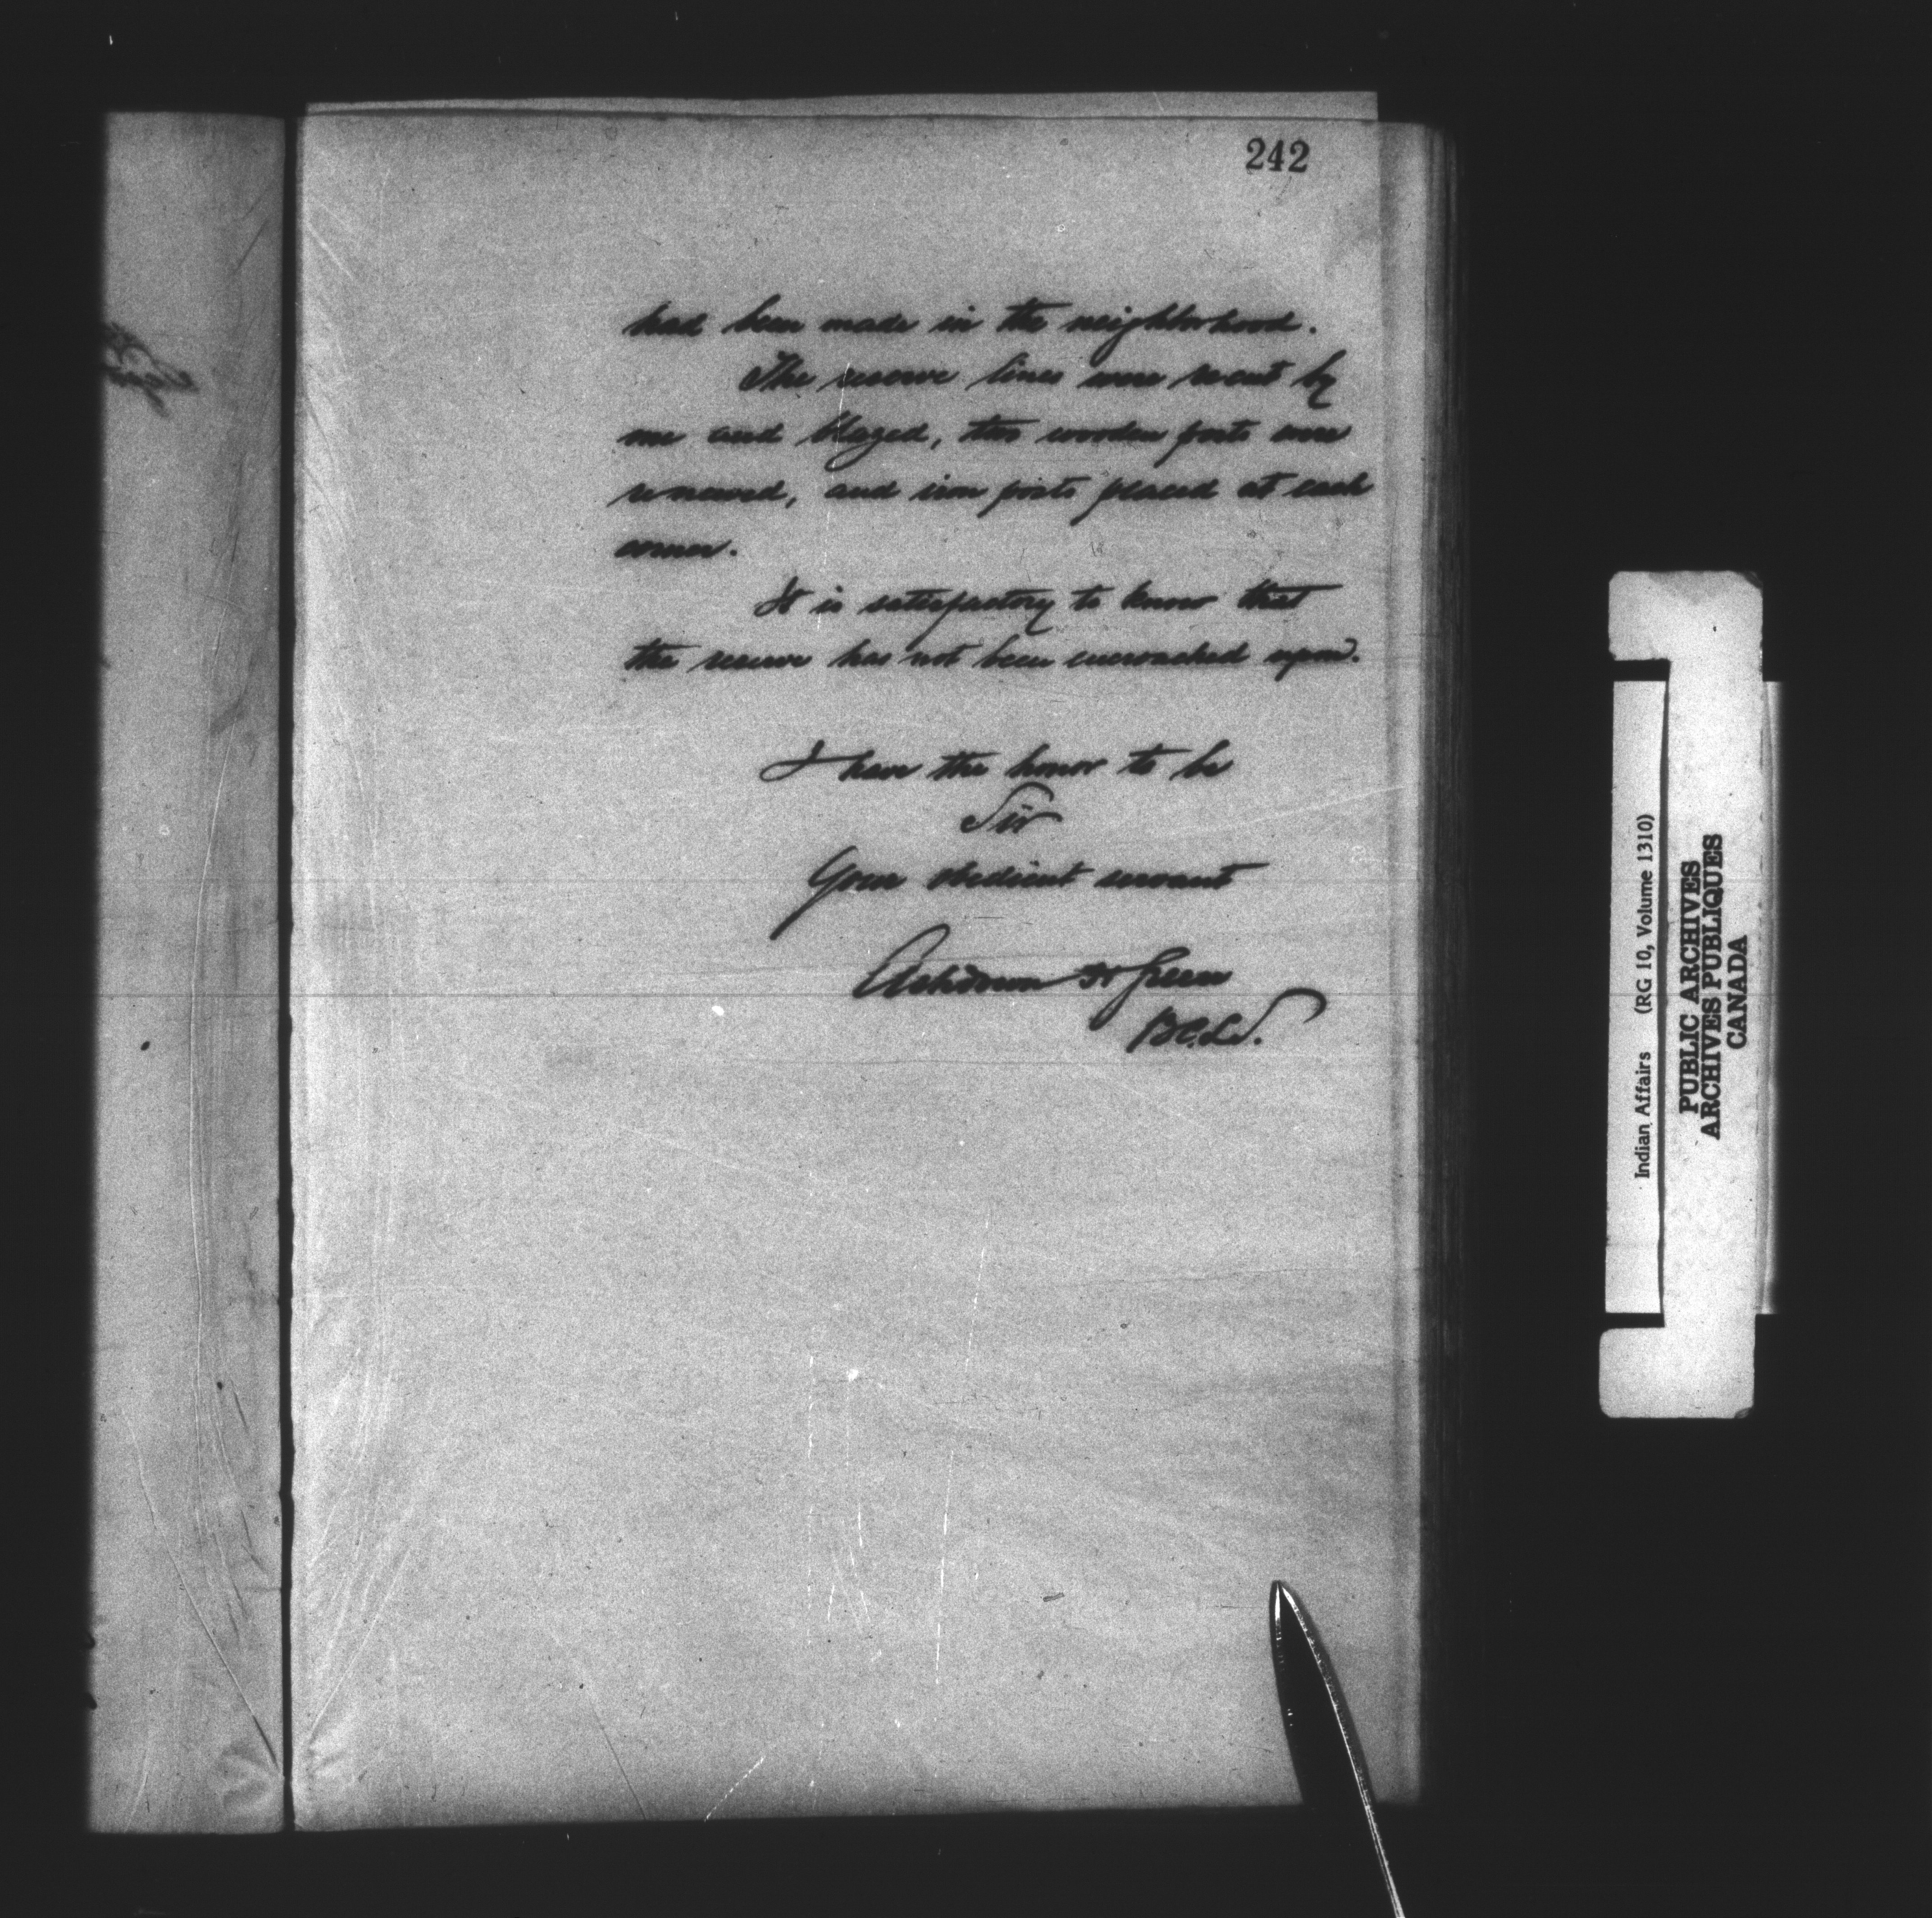 242
had been made in the neighborhood.
The reserve lines were recut by
me and blazed, the wooden posts were
renewed, and iron posts placed at each
corner.
It is satisfactory to know that
the reserve has not been encroached upon.
I have the honor to be
Sir
Your obedient servant
Ashdown H Green
B.C.L.S.
Indian Affairs (RG 10, Volume 1310)
PUBLIC ARCHIVES
ARCHIVES PUBLIQUES
CANADA